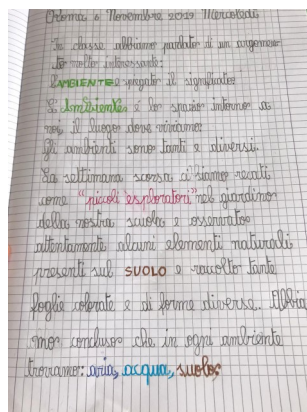 Roma 6 Novembre 2019 Mercoledì
In classe abbiamo parlato di un argomen
to molto interessante:
L'AMBIENTE e spiegato il significato
L'Ambiente è lo spazio intorno a
noi il luogo dove viviamo
Gli ambienti sono tanti e diversi.
La settimana scorsa ci siamo recati
come "piccoli esploratori" nel giardino
della nostra scuola e osservato
attentamente alcuni elementi naturali
presenti sul SUOLO e raccolto tante
foglie colorate e di forme diverse. Abbia
mo concluso che in ogni ambiente
troviamo: aria, acqua, suolo